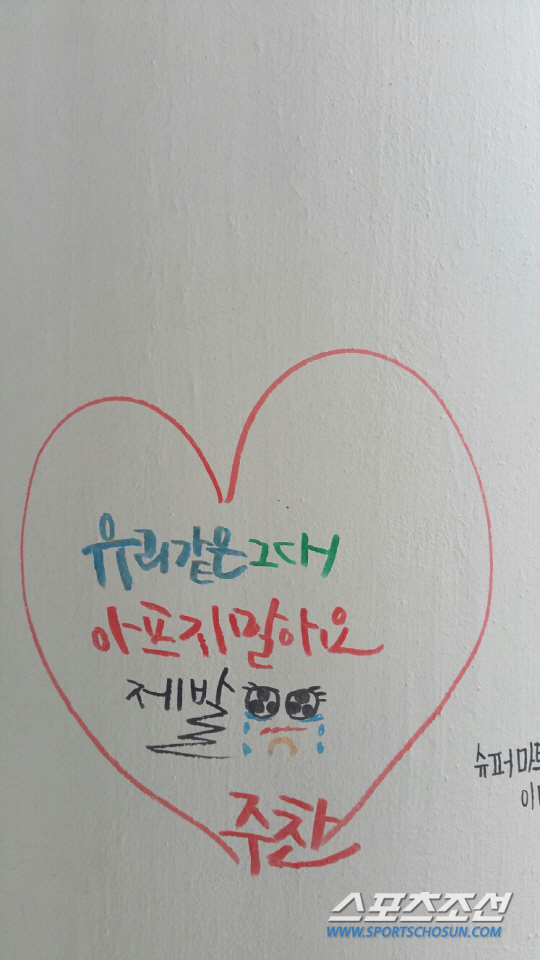 유리같은그대
아프지말아요
제발
주찬
슈퍼마트
스포츠조선
WWW.SPORTSCHOSUN.COM